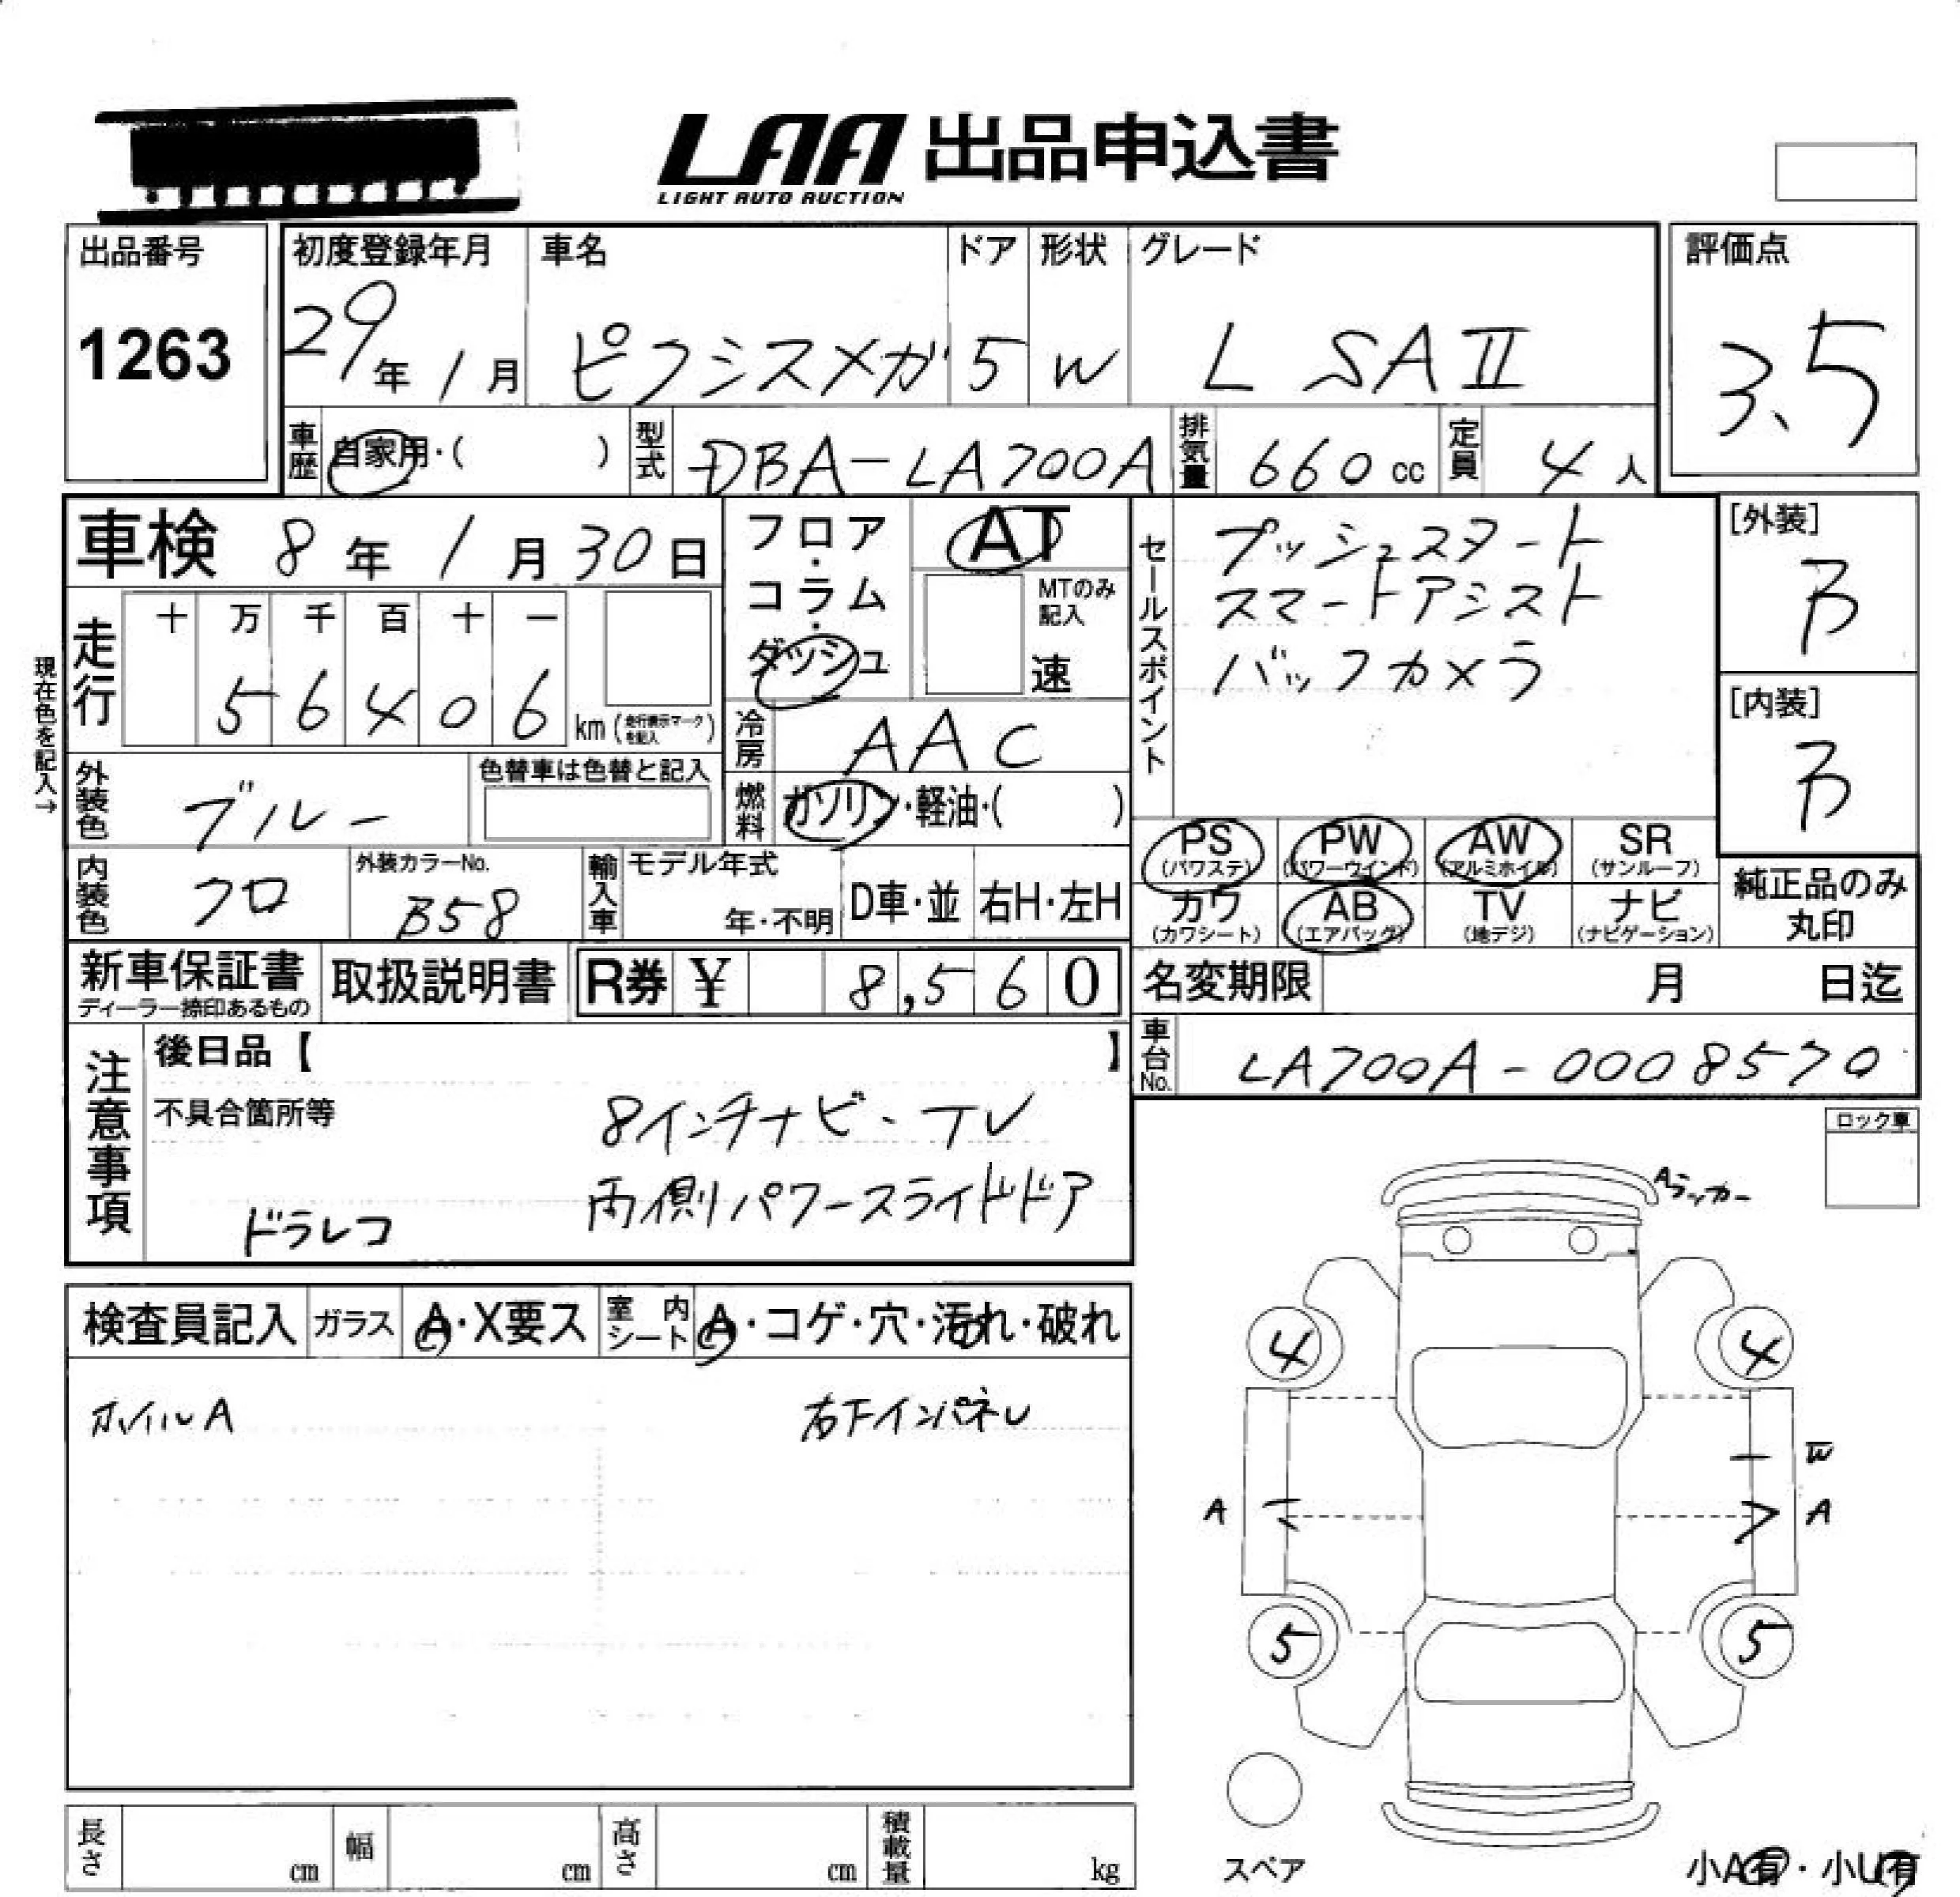 LAA 出品申込書
LIGHT AUTO AUCTION
出品番号
1263
初度登録年月
29年 1月
車名
ピクシスメガ
ドア
5
形状
W
グレード
L SAⅡ
評価点
3.5
車歴 自家用・( )
型式 DBA-LA700A
排気量 660 cc
定員 4人
車検 8年 1月 30日
現在色を記入→
走行 十 万 千 百 十 一
5 6 4 0 6 km (走行表示マークを記入)
フロア・コラム・ダッシュ
AT
MTのみ記入
速
冷房 AAC
燃料 ガソリン・軽油・( )
セールスポイント
プッシュスタート
スマートアシスト
バックカメラ
[外装]
B
[内装]
B
外装色 ブルー
色替車は色替と記入
内装色 クロ
外装カラーNo.
B58
輸入車 モデル年式
年・不明
D車・並
右H・左H
PS (パワステ)
PW (パワーウインド)
AW (アルミホイル)
SR (サンルーフ)
カワ (カワシート)
AB (エアバッグ)
TV (地デジ)
ナビ (ナビゲーション)
純正品のみ
丸印
新車保証書
ディーラー捺印あるもの
取扱説明書
R券 ¥ 8,560
名変期限 月 日迄
車台No. LA700A-0008570
注意事項
後日品【 】
不具合箇所等
8インチナビ・TV
両側パワースライドドア
ドラレコ
ロック車
検査員記入
ガラス
A・X要ス
室内シート
A・コゲ・穴・汚れ・破れ
ホイルA
右下インパネU
Aラッカー
4
4
W
A
A
5
5
スペア
小A有・小U有
長さ cm
幅 cm
高さ cm
積載量 kg